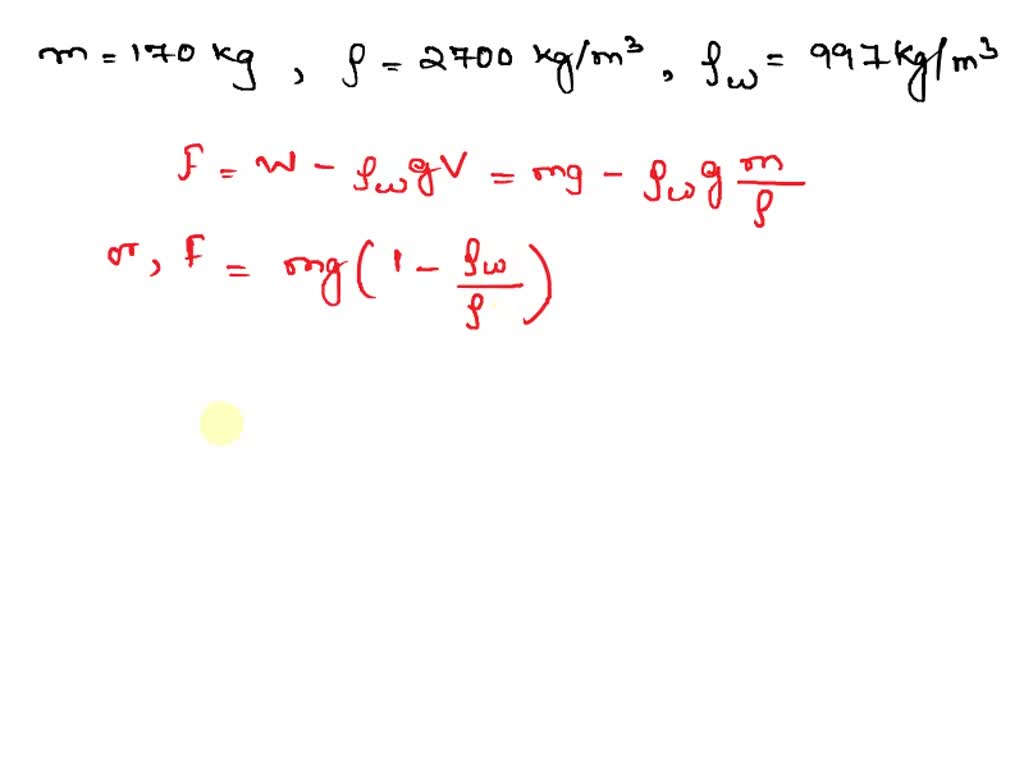 m = 170 kg , ρ = 2700 kg/m³ , ρw = 997 kg/m³
F = W - ρw g V = mg - ρw g m/ρ
or, F = mg ( 1 - ρw/ρ )